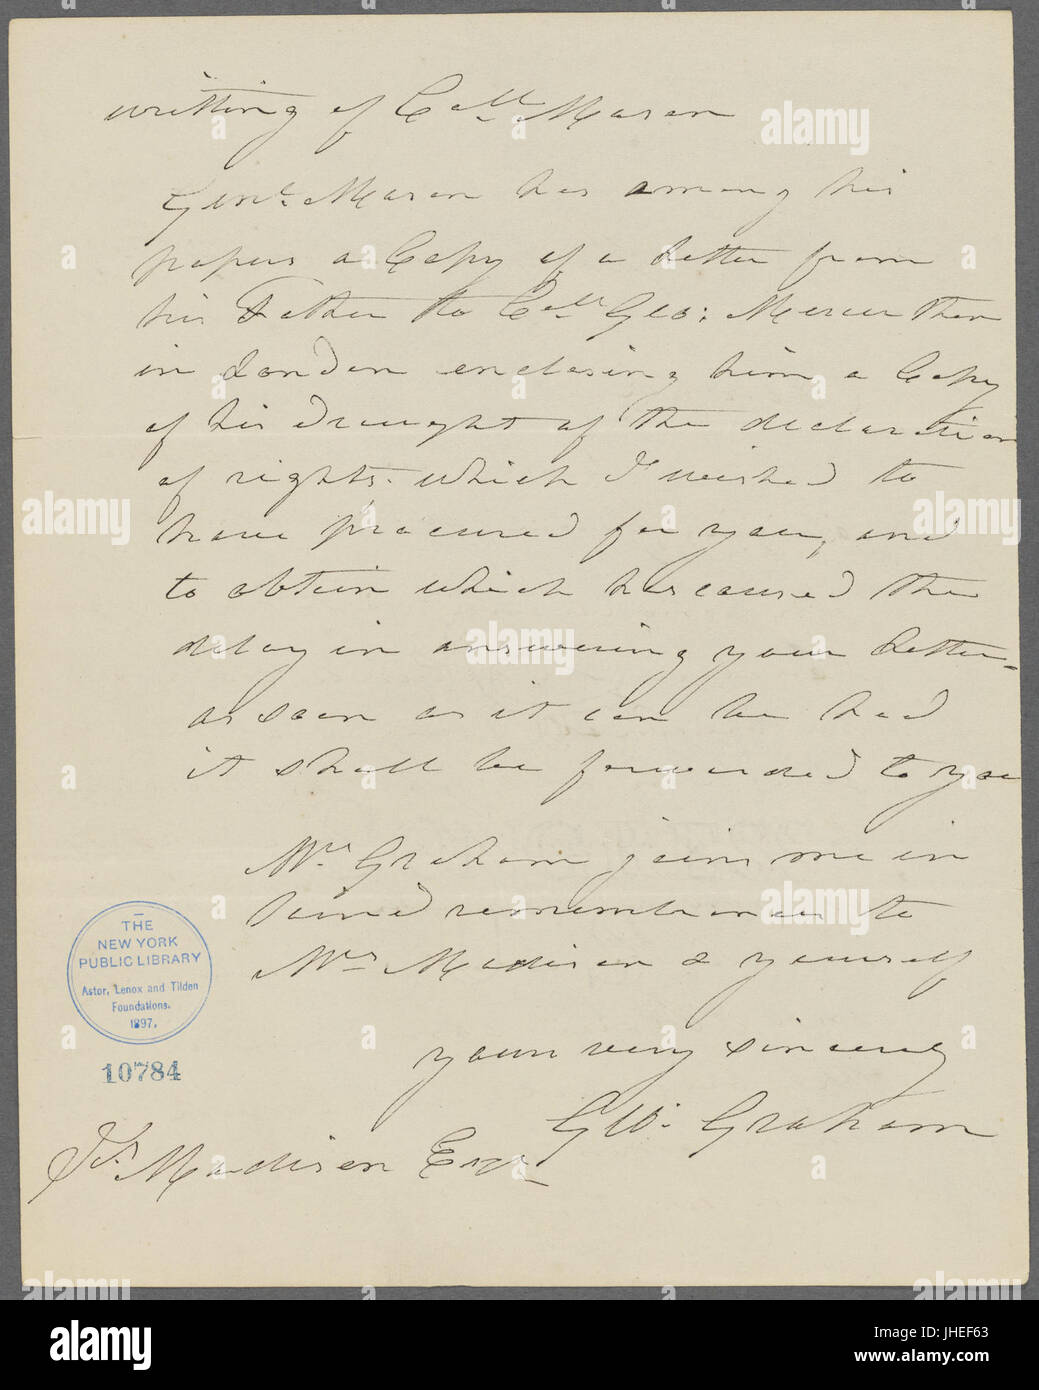 writting of Coll. Mason
Genl. Mason has among his
papers a Copy of a letter from
his Father to Coll. Geo: Mercer then
in London enclosing him a Copy
of his draught of the declaration
of rights. which I wished to
have procured for you, and
to obtain which has caused the
delay in answering your letter-
as soon as it can be had
it shall be forwarded to you
Mrs Graham joins me in
kind remembrances to
Mrs Madison & yourself
your very sincerely
Geo: Graham
Js. Madison Esqr
THE
NEW YORK
PUBLIC LIBRARY
Astor, Lenox and Tilden
Foundations.
1897.
10784
alamy
a
alamy stock photo
JHEF63
www.alamy.com